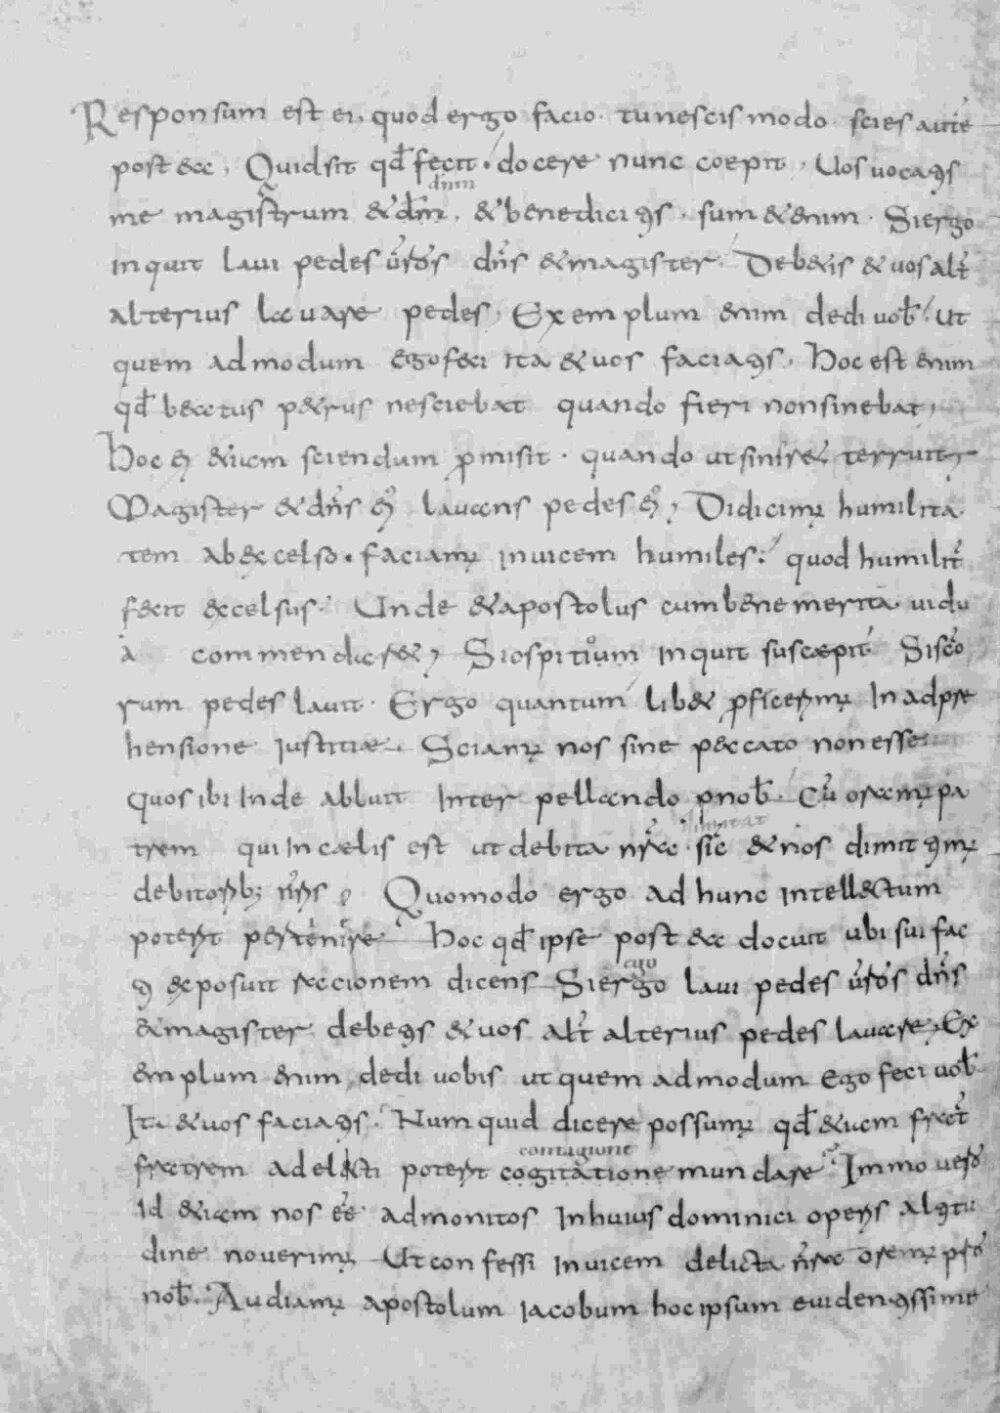 Responsum est ei, quod ergo facio· tu nescis modo· scies autē
post &ec, Quid sit qđ fecit· docere nunc coepit, Uos uocaꝯs
dnm
me magistrum &dm̄, & benediciꝯs· sum & enim· Si ergo
inquit laui pedes ūr̄os dn̄s & magister· Deb&is & uos alt̄
alterius lauare pedes, Exemplum enim dedi uob̄· Ut
quem ad modum ego feci ita & uos faciaꝯs, Hoc est enim
qđ beatus p&rus nesciebat quando fieri non sinebat,
Hoc &iam sciendum p̄misit· quando ut sinir& terruit,
Magister & dn̄s lauans pedes, Didicimꝰ humilita
tem ab excelso· faciamꝰ inuicem humiles· quod humilit̄
fecit excelsus· Unde & apostolus cum bene merita uidu
a commendar&, Si ospitium inquit suscæpit· Si sc̄o
rum pedes lauit· Ergo quantum lib& p̄ficerimꝰ In adpre
hensione iustitiæ· Sciamꝰ nos sine peccato non esse
quos ibi Inde abluit Inter pellando p nob̄· Cū oramꝰ pa
trem qui In cælis est ut debita nr̄a sic̄ & nos dimitꝯmꝰ
debitorib; nr̄is, Quomodo ergo ad hunc intellectum
poterit pertenire· Hoc qđ ipse post &ec docuit ubi sui fac
ꝯ exposuit raccionem dicens Si ergo laui pedes ūr̄os dn̄s
ego
& magister debeꝯs & uos alt̄ alterius pedes lauare, Ex
emplum enim dedi uobis ut quem ad modum ego feci uob̄
Ita & uos faciaꝯs· Numquid dicere possumꝰ qđ &iam frat̄
contagione
fratrem a delicti poterit cogitatione mundare· Immo uero
Id &iam nos ēē admonitos In huius dominici operis alꝯtu
dine nouerimꝰ Ut confessi inuicem delicta nr̄a oremꝰ pro
nob̄· Audiamꝰ apostolum iacobum hoc ipsum euidenꝯssime